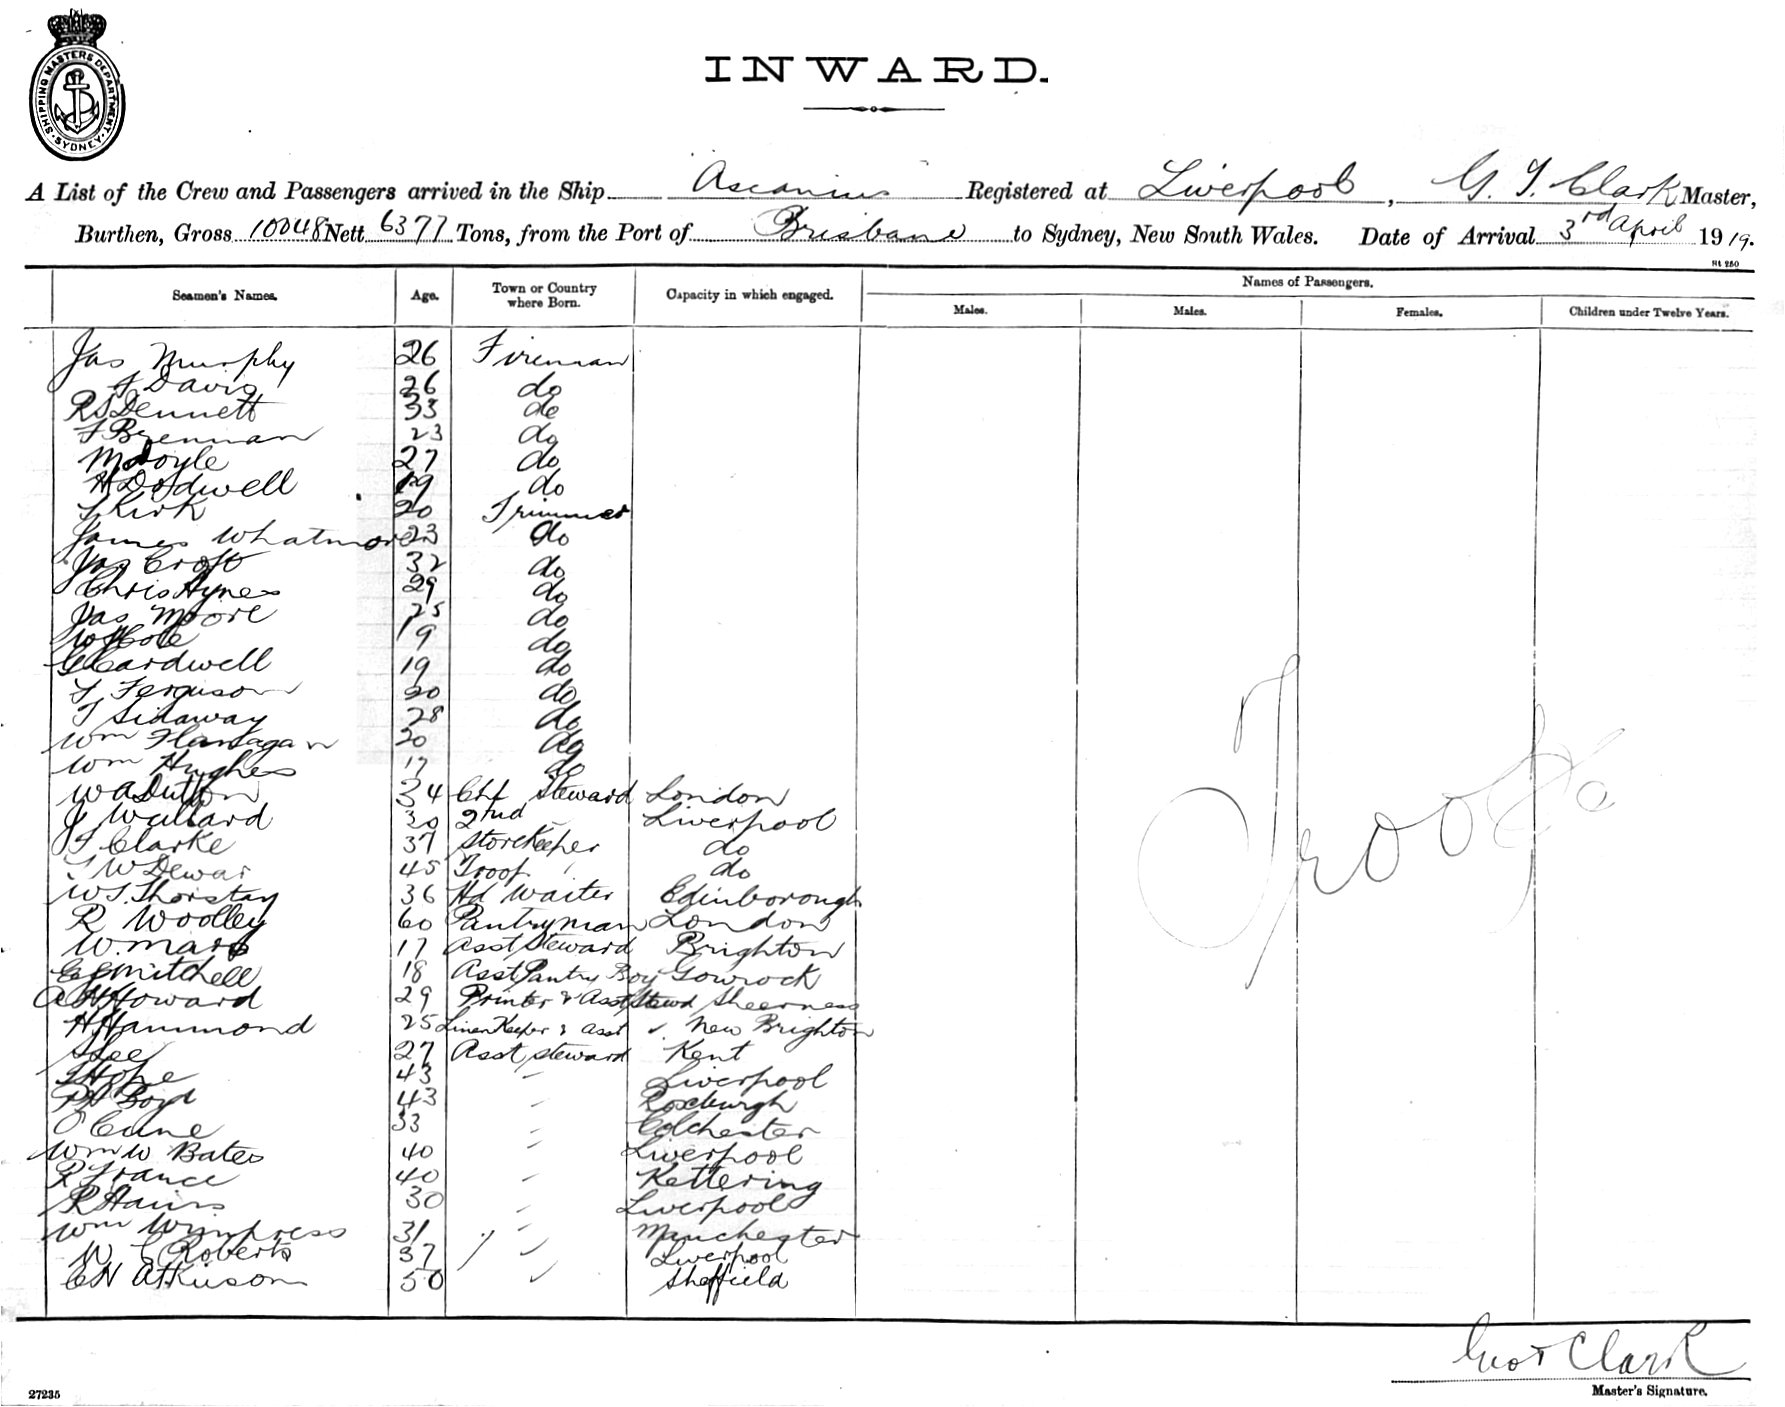 SHIPPING MASTERS DEPARTMENT. SYDNEY
INWARD.
A List of the Crew and Passengers arrived in the Ship Ascanius Registered at Liverpool, G. T. Clark Master,
Burthen, Gross 10048 Nett 6377 Tons, from the Port of Brisbane to Sydney, New South Wales. Date of Arrival 3rd April 1919.
St 280
Seamen's Names. Age. Town or Country where Born. Capacity in which engaged. Names of Passengers.
Males. Males. Females. Children under Twelve Years.
Jas Murphy 26 Fireman
T Davis 26 do
R S Dennett 33 do
T Brennan 23 do
M Doyle 27 do
H Dodwell 19 do
T Kirk 20 Trimmer
James Whatmore 23 do
Jas Croft 32 do
Chris Hynes 29 do
Jas Moore 25 do
W H Cole 19 do
G Cardwell 19 do
T Ferguson 20 do
T Sidaway 28 do
Wm Flanagan 20 do
Wm Hughes 17 do
W A Dutton 34 Chf Steward London
J Wallard 30 2nd " Liverpool
J Clarke 37 Storekeeper do
T W Dewar 45 Troop " do
W.T. Thorstay 36 Hd Waiter Edinborough
R Woolley 60 Pantryman London
W. 17 Asst Steward Brighton
Mitchell 18 Asst Pantry Boy Gowrock
A W Howard 29 Printer & Asst Stewd Sheerness
H Hammond 25 Linen Keeper & Asst " New Brighton
Lee 27 Asst Steward Kent
T Hope 43 " Liverpool
Boyd 43 " Roxburgh
33 " Colchester
Wm W Bates 40 " Liverpool
R France 40 " Kettering
R Hains 30 " Liverpool
Wm Wimpress 31 " Manchester
W E Roberts 37 " Liverpool
C H Atkinson 50 " Sheffield
Troops
Geo T Clark
Master's Signature.
27235